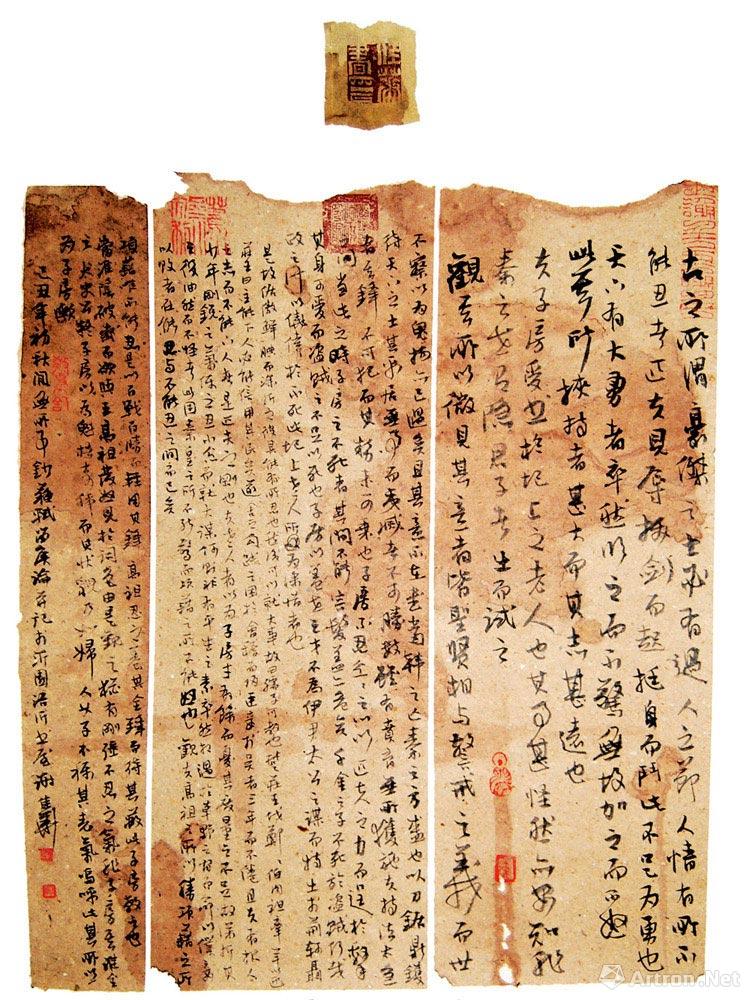 古之所謂豪傑之士必有過人之節人情有所不
能忍者匹夫見辱拔劍而起挺身而鬥此不足為勇也
天下有大勇者卒然臨之而不驚無故加之而不怒
此其所挾持者甚大而其志甚遠也
夫子房受書於圯上之老人也其事甚怪然亦安知非
秦之世有隱君子者出而試之
觀其所以微見其意者皆聖賢相與警戒之義而世
不察以為鬼物亦已過矣且其意不在書當韓之亡秦之方盛也以刀鋸鼎鑊
待天下之士其平居無事而夷滅者不可勝數雖有賁育無所獲施夫持法太急
者其鋒不可犯而其勢未可乘也子房不忍忿忿之心以匹夫之力而逞於一擊
之間當此之時子房之不死者其間不能容髮蓋亦危矣千金之子不死於盜賊何哉
其身可愛而盜賊之不足以死也子房以蓋世之才不為伊尹太公之謀而特出於荊軻聶
政之計以僥倖於不死此圯上老人所為深惜者也
是故倨傲鮮腆而深折之彼其能有所忍也然後可以就大事故曰孺子可教也楚莊王伐鄭鄭伯肉袒牽羊以迎
莊王曰其主能下人必能信用其民矣遂舍之勾踐之困於會稽而歸臣妾於吳者三年而不倦且夫有報人
之志而不能下人者是匹夫之剛也夫老人者以為子房才有餘而憂其度量之不足故深折其
少年剛銳之氣使之忍小忿而就大謀何則非有平生之素卒然相遇於草野之間而命以僕妾
之役油然而不怪者此固秦皇之所不能驚而項籍之所不能怒也觀夫高祖之所以勝項籍之所
以敗者在能忍與不能忍之間而已矣
項籍唯不能忍是以百戰百勝而輕用其鋒高祖忍之養其全鋒而待其斃此子房教之也
當淮陰破齊而欲自王高祖發怒見於詞色由是觀之猶有剛強不忍之氣非子房其誰全
之太史公疑子房以為魁梧奇偉而其狀貌乃如婦人女子不稱其志氣嗚呼此其所以
為子房歟
己丑年初秋閒無所事鈔蘇軾留侯論并記於沂園浴沂書屋謝佳華
Artron.Net